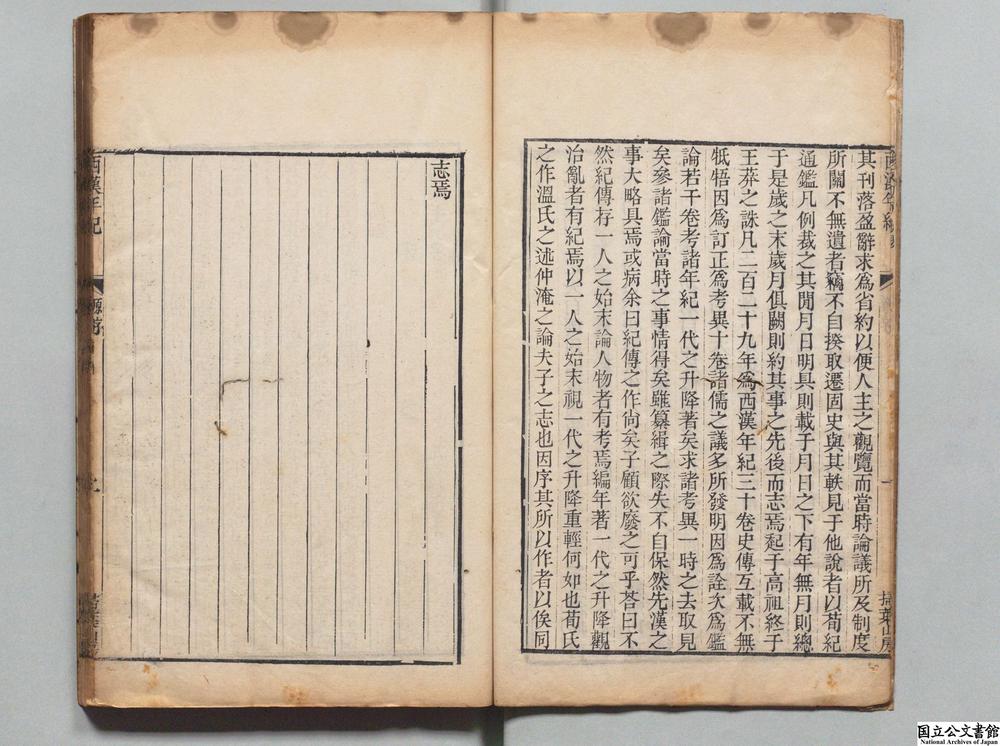 其刊落盈辭求爲省約以便人主之觀覽而當時論議所及制度
所關不無遺者竊不自揆取遷固史與其軼見于他說者以荀紀
通鑑凡例裁之其閒月日明具則載于月日之下有年無月則總
于是歲之末歲月俱闕則約其事之先後而志焉起于高祖終于
王莽之誅凡二百二十九年爲西漢年紀三十卷史傳互載不無
牴牾因爲訂正爲考異十卷諸儒之議多所發明因爲詮次爲鑑
論若干卷考諸年紀一代之升降著矣求諸考異一時之去取見
矣參諸鑑論當時之事情得矣雖纂緝之際失不自保然先漢之
事大略具焉或病余曰紀傳之作尚矣子顧欲廢之可乎荅曰不
然紀傳存一人之始末論人物者有考焉編年著一代之升降觀
治亂者有紀焉以一人之始末視一代之升降重輕何如也荀氏
之作溫氏之述仲淹之論夫子之志也因序其所以作者以俟同
掃葉山房
志焉
西漢年紀
原序
掃葉山房
国立公文書館
National Archives of Japan